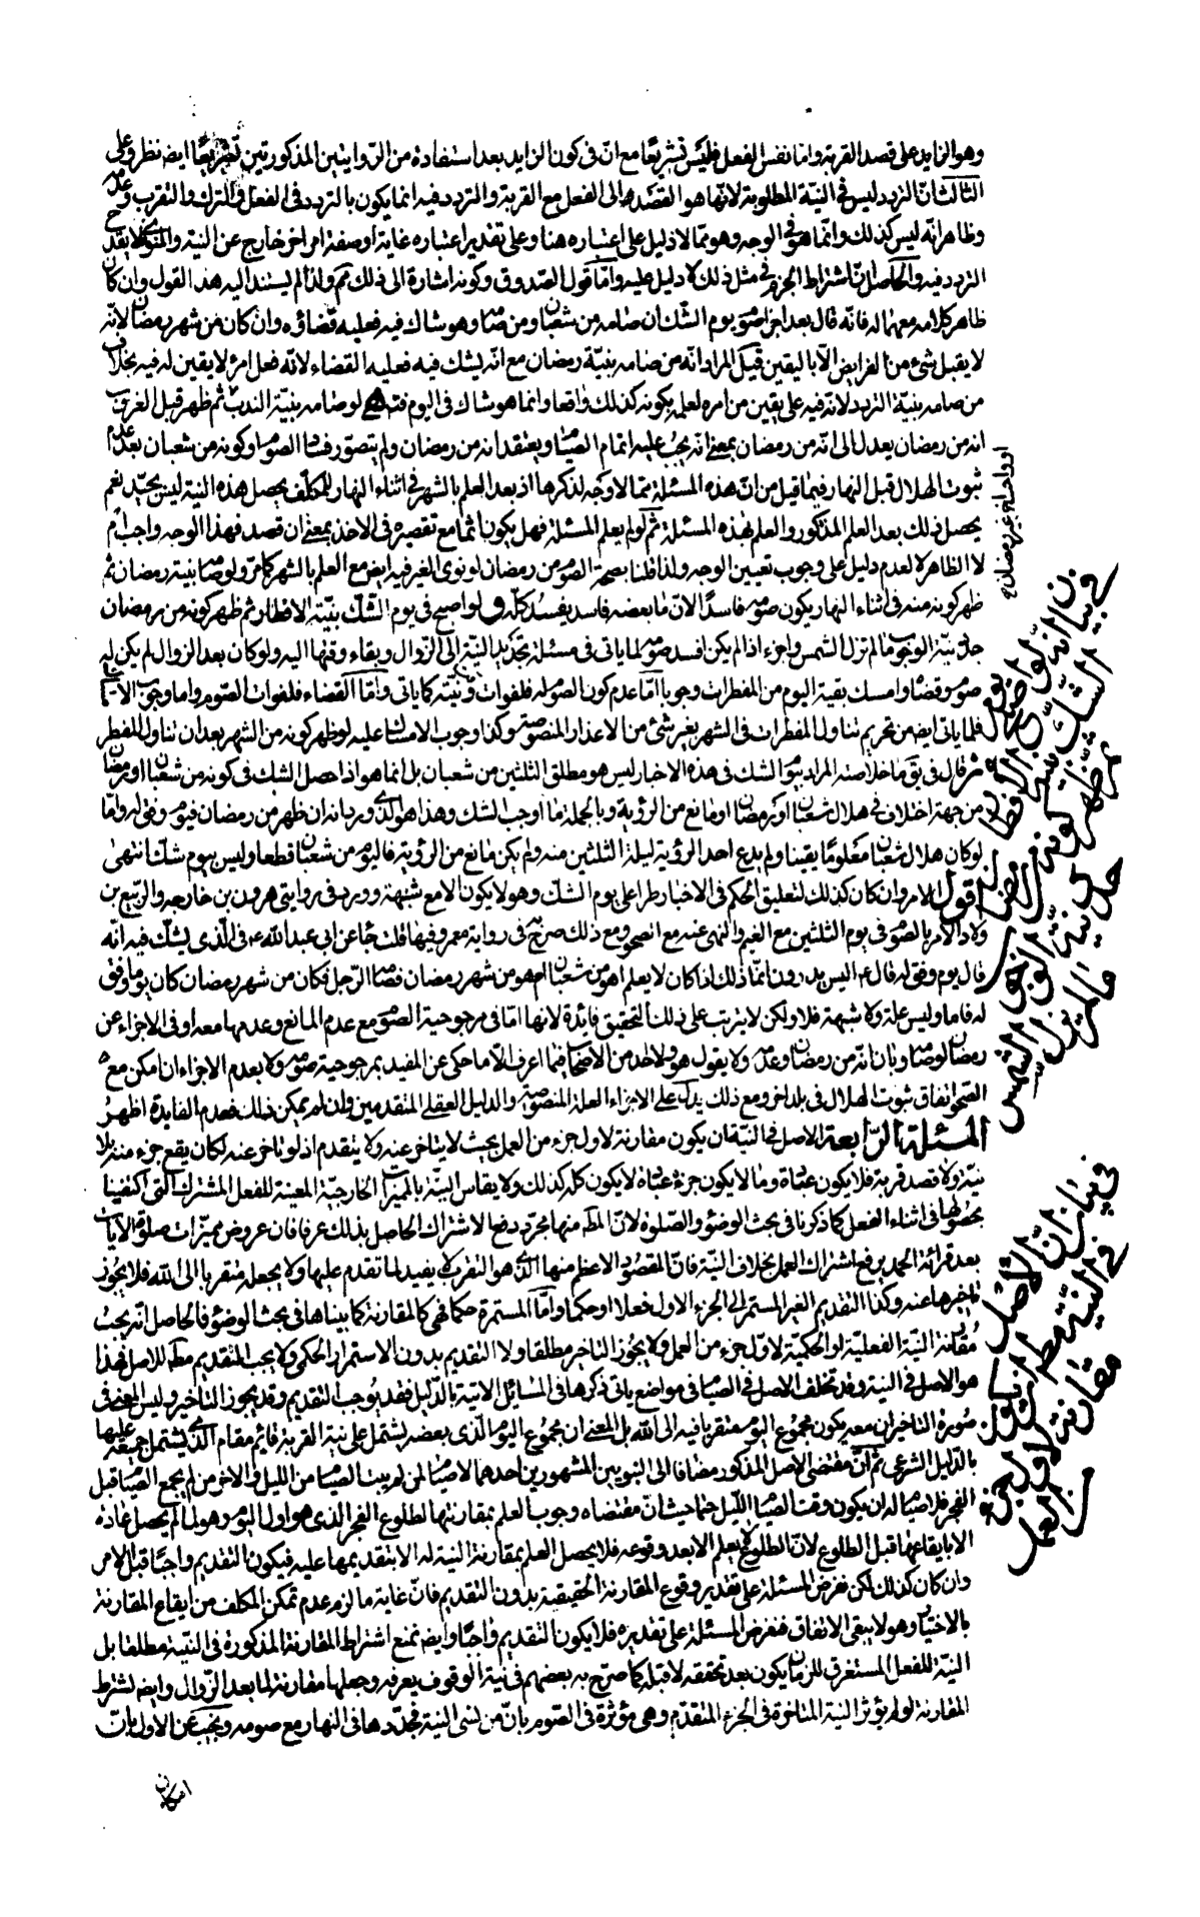 وهو الزايد على قصد القربة واما نفس الفعل فليس تشريعًا مع انّ فى كون الزايد بعد استفادة من الرّوايتين المذكورتين تشريعًا ايضه نظر وعلى
الثالث انّ التردد ليس فى النيّة المطلوبة لانّها هو القصد الى الفعل مع القربة والتردد فيه انما يكون بالتردد فى الفعل فى الترك والتقرب وعدمه
وظاهر انّه ليس كذلك وانّما هو فى الوجه وهو ممّا لا دليل على اعتباره هنا وعلى تقدير اعتباره غاية او صفة امر اخر خارج عن النية والمنوى فلا يقدح
التردد فيه والحاصل انّ اشتراط الجزم فى مثل ذلك لا دليل عليه وامّا قول الصّدوق وكونه اشارة الى ذلك مم ولذا لم يستند اليه هذا القول وان كان
ظاهر كلامه معهما له فانّه قال بعد اجزاء صوم يوم الشّك ان صامه من شعبان ومن صام وهو شاك فيه فعليه قضاؤه وان كان من شهر رمضان لانّه
لا يقبل شئ من الفرايض الّا باليقين قيل المراد انّه من صامه بنيّة رمضان مع انّه يشك فيه فعليه القضاء لانّه فعل امرًا لا يقين له فيه بخلاف
من صامه بنيّة التردد لانّه فيه على يقين من امره لعلمه بكونه كذلك واقعا وانما هو شاك فى اليوم لو صامه بنيّة الندب ثم ظهر قبل الغروب
انه من رمضان يعدل الى انّه من رمضان بمعنى انه يجب عليه اتمام الصيام ويعتقد انه من رمضان ولم يتصوّر فساد الصوم وكونه من شعبان بعد عدم
ثبوت الهلال قبل النهار فيما قيل من انّ هذه المسئلة ممّا لا وجه لذكرها اذ بعد العلم بالشهر فى اثناء النهار للمكلّف يحصل هذه النية ليس بجيّد نعم
يحصل ذلك بعد العلم المذكور والعلم بهذه المسئلة ثم لو لم يعلم المسئلة فهل يكون آثما مع تقصيره فى الاخذ بمعنى ان قصد فهذا الوجه واجب ام
لا الظاهر لا لعدم دليل على وجوب تعيين الوجه ولذا قلنا بصحة الصوم من رمضان لو نوى الغير فيه ايضه مع العلم بالشهر كما مرّ ولو صام بنيّة رمضان ثم
ظهر كونه منه فى اثناء النهار يكون صومه فاسدًا لانّ ما بعضه فاسد يفسد كلّه ولو اصبح فى يوم الشّك بنيّة الافطار ثم ظهر كونه من رمضان
جدّد نيّة الوجوب ما لم تزل الشمس واجزء اذا لم يكن افسد صومه لما ياتى فى مسئلة تجديد النيّة الى الزّوال وبقاء وقتها اليه ولو كان بعد الزوال لم يكن له
صوم وقضاه وامسك بقية اليوم من المفطرات وجوبا امّا عدم كون الصوم له فلفوات نيّته كما ياتى وامّا القضاء فلفوات الصّوم واما وجوب الامساك
فلما ياتى ايضه من تحريم تناول المفطرات فى الشهر بغير شئ من الاعذار المنصوصة وكذا وجوب الامساك عليه لو ظهر كونه من الشهر بعد ان تناول المفطر
ثم قال فى ما خلاصته المراد بيوم الشك فى هذه الاخبار ليس هو مطلق الثلثين من شعبان بل انما هو اذا حصل الشك فى كونه من شعبان او رمضان
من جهة اختلاف فى هلال شعبان او رمضان او مانع من الرؤية وبالجملة ما اوجب الشك وهذا هو الذى ورد بانه ان ظهر من رمضان فيوم وفق له وامّا
لو كان هلال شعبان معلومًا يقينا ولم يدع احد الرؤية ليلة الثلثين منه ولم يكن مانع من الرؤية فاليوم من شعبان قطعا وليس بيوم شك انتهى
اقول الامر وان كان كذلك لتعليق الحكم فى الاخبار طرا على يوم الشّك وهو لا يكون الا مع شبهة وورد فى روايتى هرون بن خارجه والربيع بن
ولاد الامر بالصوم فى يوم الثلثين مع الغيم والنهى عنه مع الصحو ومع ذلك صريح فى رواية معمر وفيها قلت عن ابى عبد الله ع فى الّذى يشكّ فيه انّه
قال يوم وفق له قال ع اليس يدرون انمّا ذلك اذا كان لا يعلم اهو من شعبان ام هو من شهر رمضان فصام الرّجل فكان من شهر رمضان كان يوما وفق
له فاما وليس علة ولا شبهة فلا ولكن لا يترتب على ذلك التحقيق فائدة لانها امّا فى مرجوحية الصوم مع عدم المانع وعدمها معه او فى الاجزاء عن
رمضان لو صام وبان انّه من رمضان وعدمه ولا يقول هو ولا احد من الاصحاب فيما اعرف الّا ما حكى عن المفيد بمرجوحية صومه ولا بعدم الاجزاء ان امكن مع
الصحو اتفاق ثبوت الهلال فى بلد اخر ومع ذلك يدل على الاجزاء العلة المنصوصة والدليل العقلى المتقدمين وان لم يمكن ذلك فعدم الفايدة اظهر
المسئلة الرّابعة الاصل فى النيّة ان يكون مقارنة لاول جزء من العمل بحيث لا يتاخر عنه ولا يتقدم اذ لو تاخر عنه لكان يقع جزء منه بلا
نيّة ولا قصد قربة فلا يكون عبادة وما لا يكون جزئه عبادة لا يكون كله كذلك ولا يقاس النيّة بالمميزات الخارجيّة المعينة للفعل المشترك التى اكتفينا
بحصولها فى اثناء الفعل كما ذكرنا فى بحث الوضوء والصّلوة لانّ المط منها مجرّد رفع الاشتراك الحاصل بذلك عرفا فان عروض مميّزات صلوة الايات
بعد قرائة الحمد يرفع اشتراك العمل بخلاف النيّة فانّ المقصود الاعظم منها الذى هو التقرب لا يفيد لما تقدم عليها ولا يجعله متقربا الى الله فلا يجوز
تاخيرها عنه وكذا التقديم الغير المستمر الى الجزء الاول فعلا او حكما وامّا المستمرة حكما فهى كالمقارنة كما بيناها فى بحث الوضوء فالحاصل انّه يجب
مقارنة النيّة الفعليّة او الحكميّة لاوّل جزء من العمل ولا يجوز التاخير مطلقا ولا التقديم بدون الاستمرار الحكمى ولا يجب التقديم مطلقا للاصل فهذا
هو الاصل فى النية وقد تخلف الاصل فى الصيام فى مواضع ياتى ذكرها فى المسائل الاتية بالدّليل فقد يوجب التقديم وقد يجوز التاخير وليس المعنى فى
صورة التاخير ان معه يكون مجموع اليوم متقربا فيه الى الله بل المعنى ان مجموع اليوم الذى بعضه يشتمل على نية القربة قائم مقام الذى يشتمل جميعه عليها
بالدّليل الشرعى ثم انّ مقتضى الاصل المذكور مضافا الى النبويين المشهورين احدهما لا صيام لمن لم يبيت الصيام من الليل والآخر من لم يجمع الصيام قبل
الفجر فلا صيام له ان يكون وقت الصيام اللّيل حتما حيث انّ مقتضاه وجوب العلم بمقارنتها لطلوع الفجر الذى هو اول اليوم وهو لما لم يحصل عادة
الا بايقاعها قبل الطلوع لانّ الطلوع لا يعلم الا بعد وقوعه فلا يحصل العلم بمقارنة النية له الا بتقديمها عليه فيكون التقديم واجبا قبل الامر
وان كان كذلك لكن نفرض المسئلة على تقدير وقوع المقارنة الحقيقية بدون التقديم فانّ غاية ما لزم عدم تمكن المكلف من ايقاع المقارنة
بالاختيار وهو لا ينفى الاتفاق فنفرض المسئلة على تقديره فلا يكون التقديم واجبًا وايضه نمنع اشتراط المقارنة المذكورة فى النيّة مطلقا بل
النيّة للفعل المستغرق للزمان يكون بعد تحققه لا قبله كما صرّح به بعضهم فى نية الوقوف بعرفه وجعلها مقارنة لما بعد الزّوال وايضه لشرط
المقارنة لو لم يؤثر النية المتاخرة فى الجزء المتقدم وهى مؤثرة فى الصّوم بانّ من نسى النية فجدّدها فى النهار مع صومه ويجب عن الاول بانّ
امكان
او واجباه غير رمضان ح
فى بيان انه لو اصبح فى يوم الشك بنية الافطار ثم ظهر كونه من رمضان جدد نية الوجوب ما لم تزل الشمس
فى بيان انّ الاصل فى النية ان يكون مقارنة لاول جزء من العمل